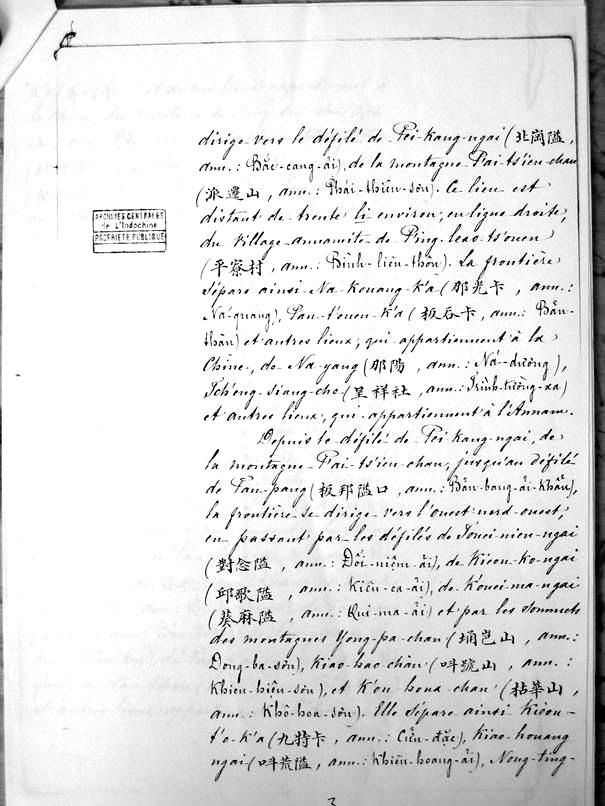 dirige vers le défilé de Pei-kang-ngai (北崗隘,
ann.: Bắc-cang-ải), de la montagne P'ai-ts'ien-chan
(派遷山, ann.: Phái-thiên-sơn). Ce lieu est
distant de trente li environ, en ligne droite,
du village annamite de Ping-leao-ts'ouen
(平寮村, ann.: Bình-liêu-thôn). La frontière
sépare ainsi Na-kouang-k'a (那光卡, ann.:
Na-quang), Pan-t'ouen-k'a (板吞卡, ann.: Bản-
thân) et autres lieux, qui appartiennent à la
Chine, de Na-yang (那陽, ann.: Ná-dương),
Tch'eng-siang-che (呈祥社, ann.: Trình-tường-xa)
et autres lieux, qui appartiennent à l'Annam.
Depuis le défilé de Pei-kang-ngai, de
la montagne P'ai-ts'ien-chan, jusqu'au défilé
de Pan-pang (板邦隘口, ann.: Bản-bang-ải-khẩu),
la frontière se dirige vers l'ouest-nord-ouest,
en passant par les défilés de Touei-nien-ngai
(對念隘, ann.: Đối-niệm-ải), de Kieou-ko-ngai
(邱歌隘, ann.: Kiêu-ca-ải), de K'ouei-ma-ngai
(葵麻隘, ann.: Qui-ma-ải) et par les sommets
des montagnes Yong-pa-chan (埇岜山, ann.:
Dong-ba-sơn), Kiao-hao-chan (呌號山, ann.:
Khieu-hiệu-sơn), et K'ou-houa-chan (枯華山,
ann.: Khô-hoa-sơn). Elle sépare ainsi Kieou-
t'o-k'a (九特卡, ann.: Cửu-đặc), Kiao-houang
ngai (呌荒隘, ann.: Khiêu-hoang-ải), Nong-ting-
ARCHIVES CENTRALES
de L'Indochine
PROPRIETE PUBLIQUE